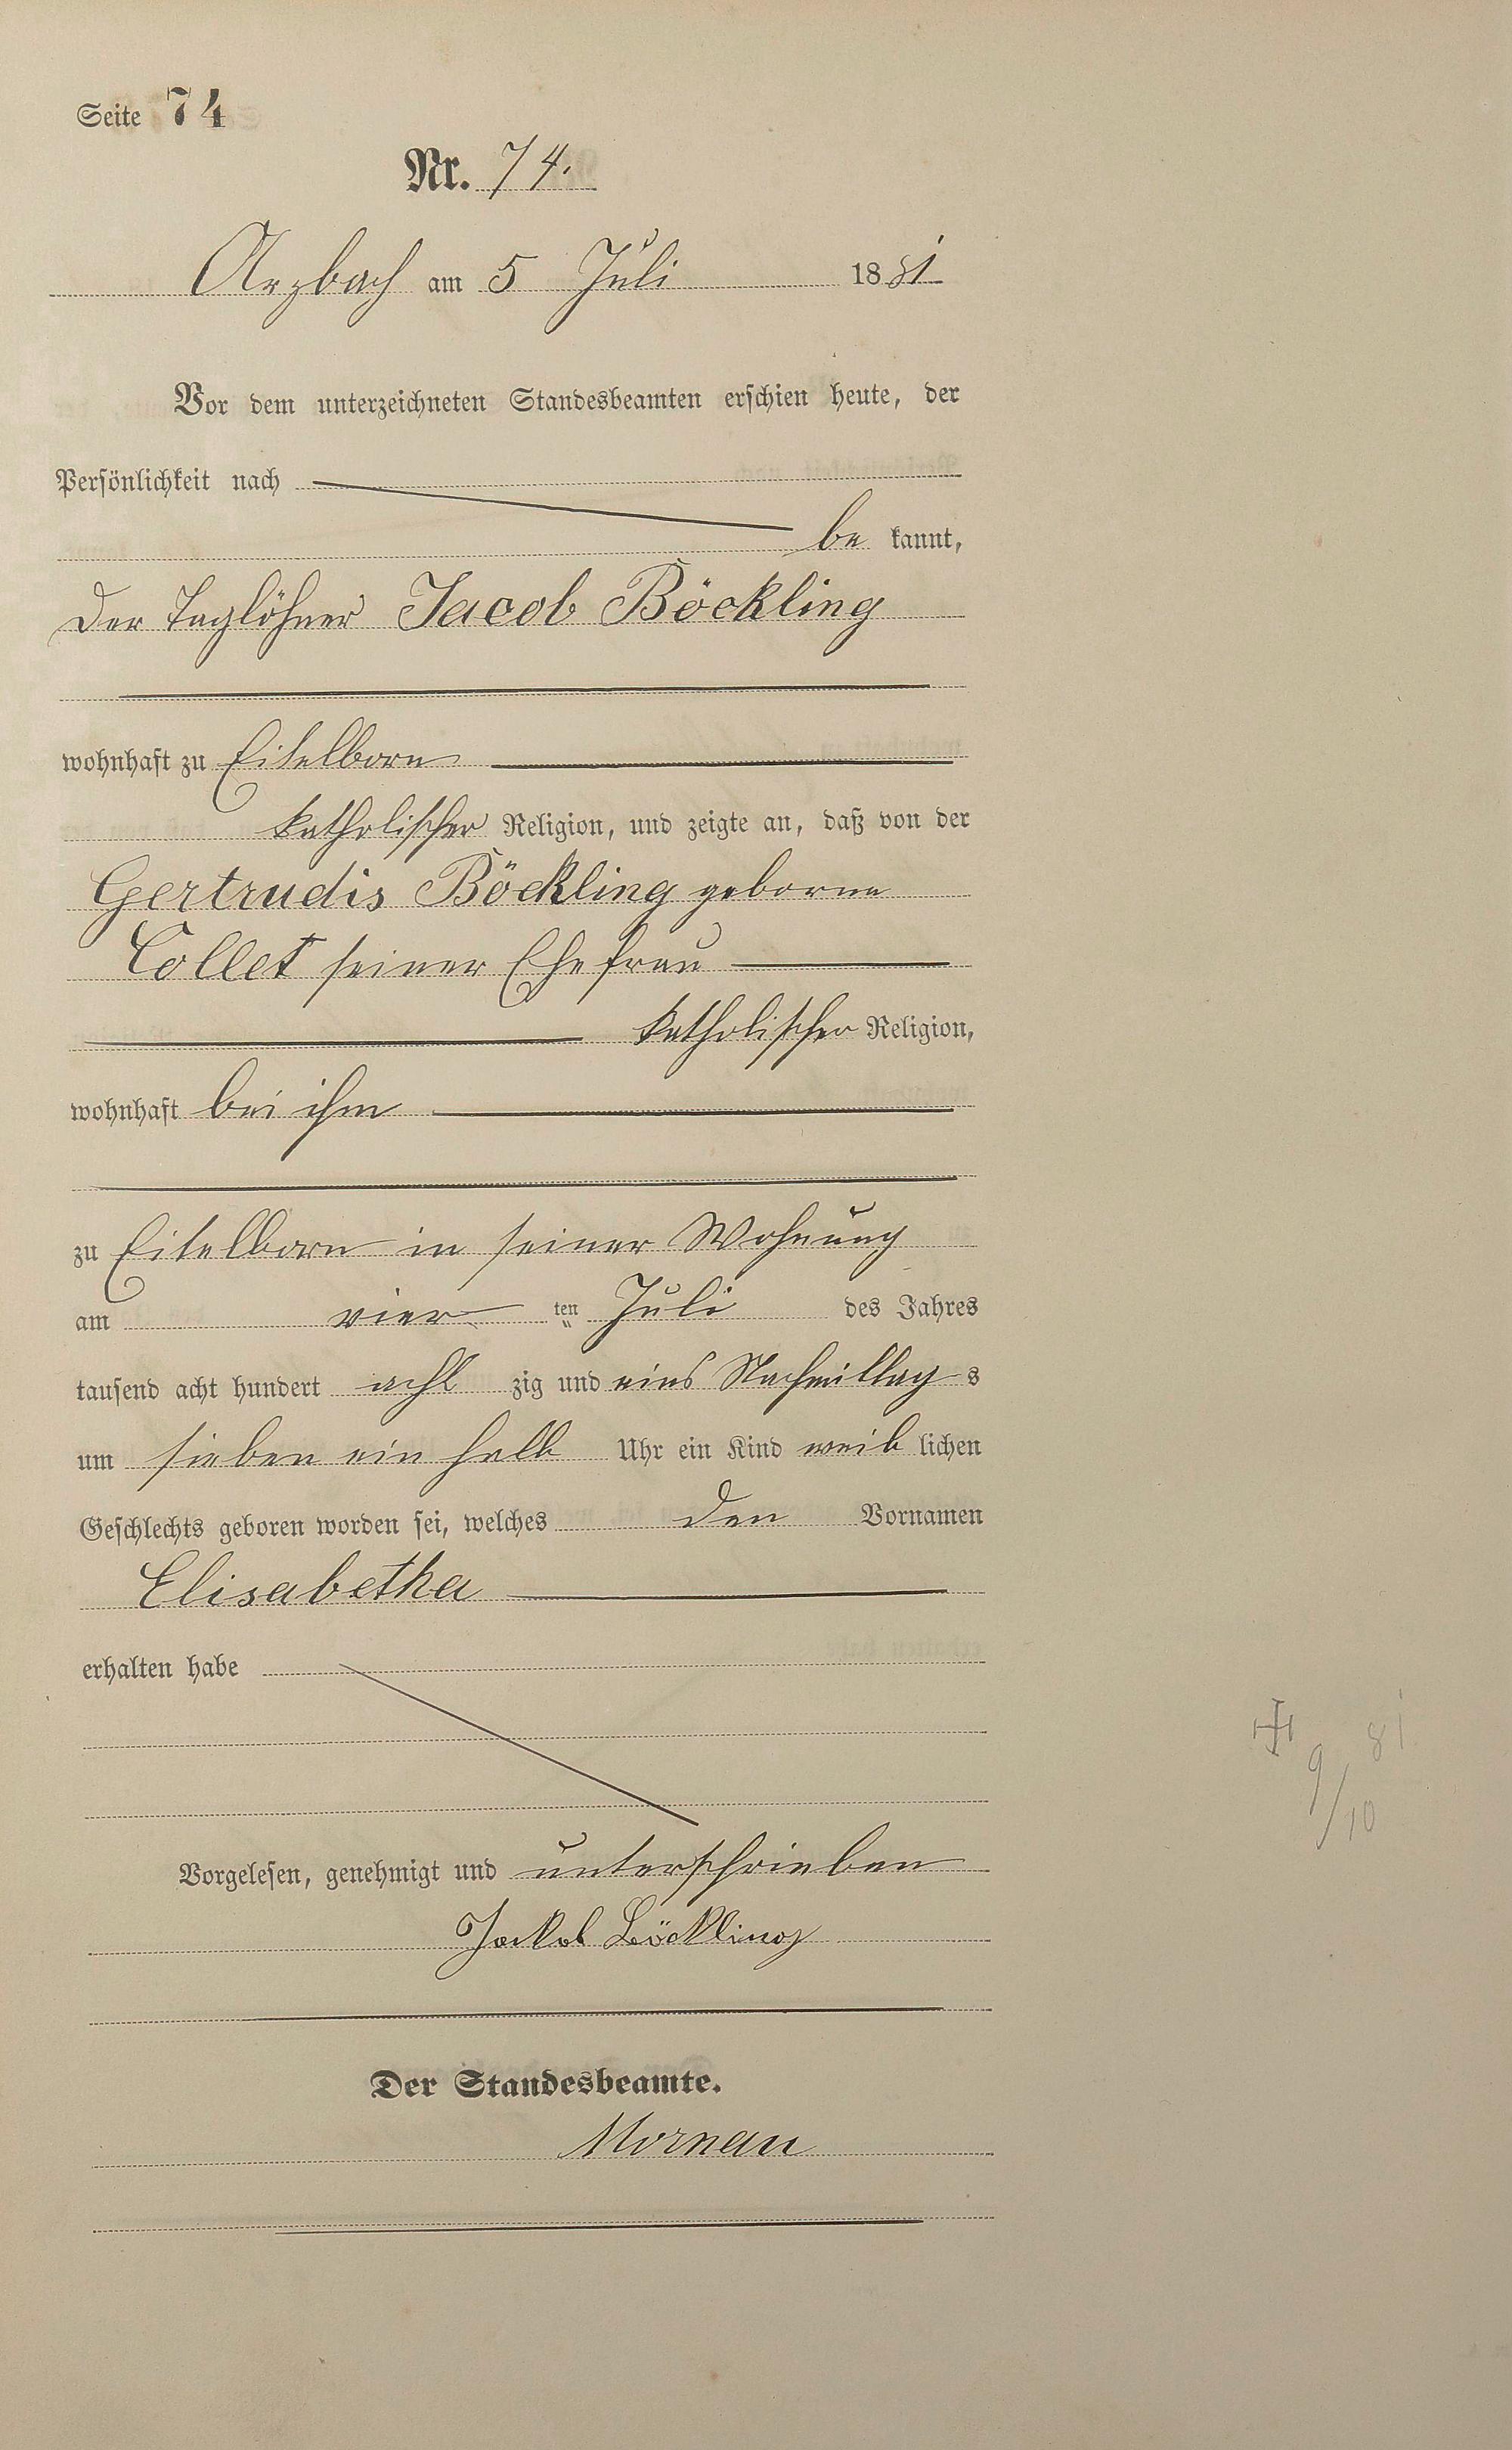 Seite 74
Nr. 74.
Arzbach am 5 Juli 1881
Vor dem unterzeichneten Standesbeamten erschien heute, der
Persönlichkeit nach
be kannt,
der Taglöhner Jacob Böckling
wohnhaft zu Eitelborn
katholischer Religion, und zeigte an, daß von der
Gertrudis Böckling geborne
Collet seiner Ehefrau
katholischer Religion,
wohnhaft bei ihm
zu Eitelborn in seiner Wohnung
am vier ten Juli des Jahres
tausend acht hundert acht zig und eins Nachmittag s
um sieben ein halb Uhr ein Kind weib lichen
Geschlechts geboren worden sei, welches den Vornamen
Elisabetha
erhalten habe
Vorgelesen, genehmigt und unterschrieben
Jackob Böckling
Der Standesbeamte.
Mornau
+ 9/10 81